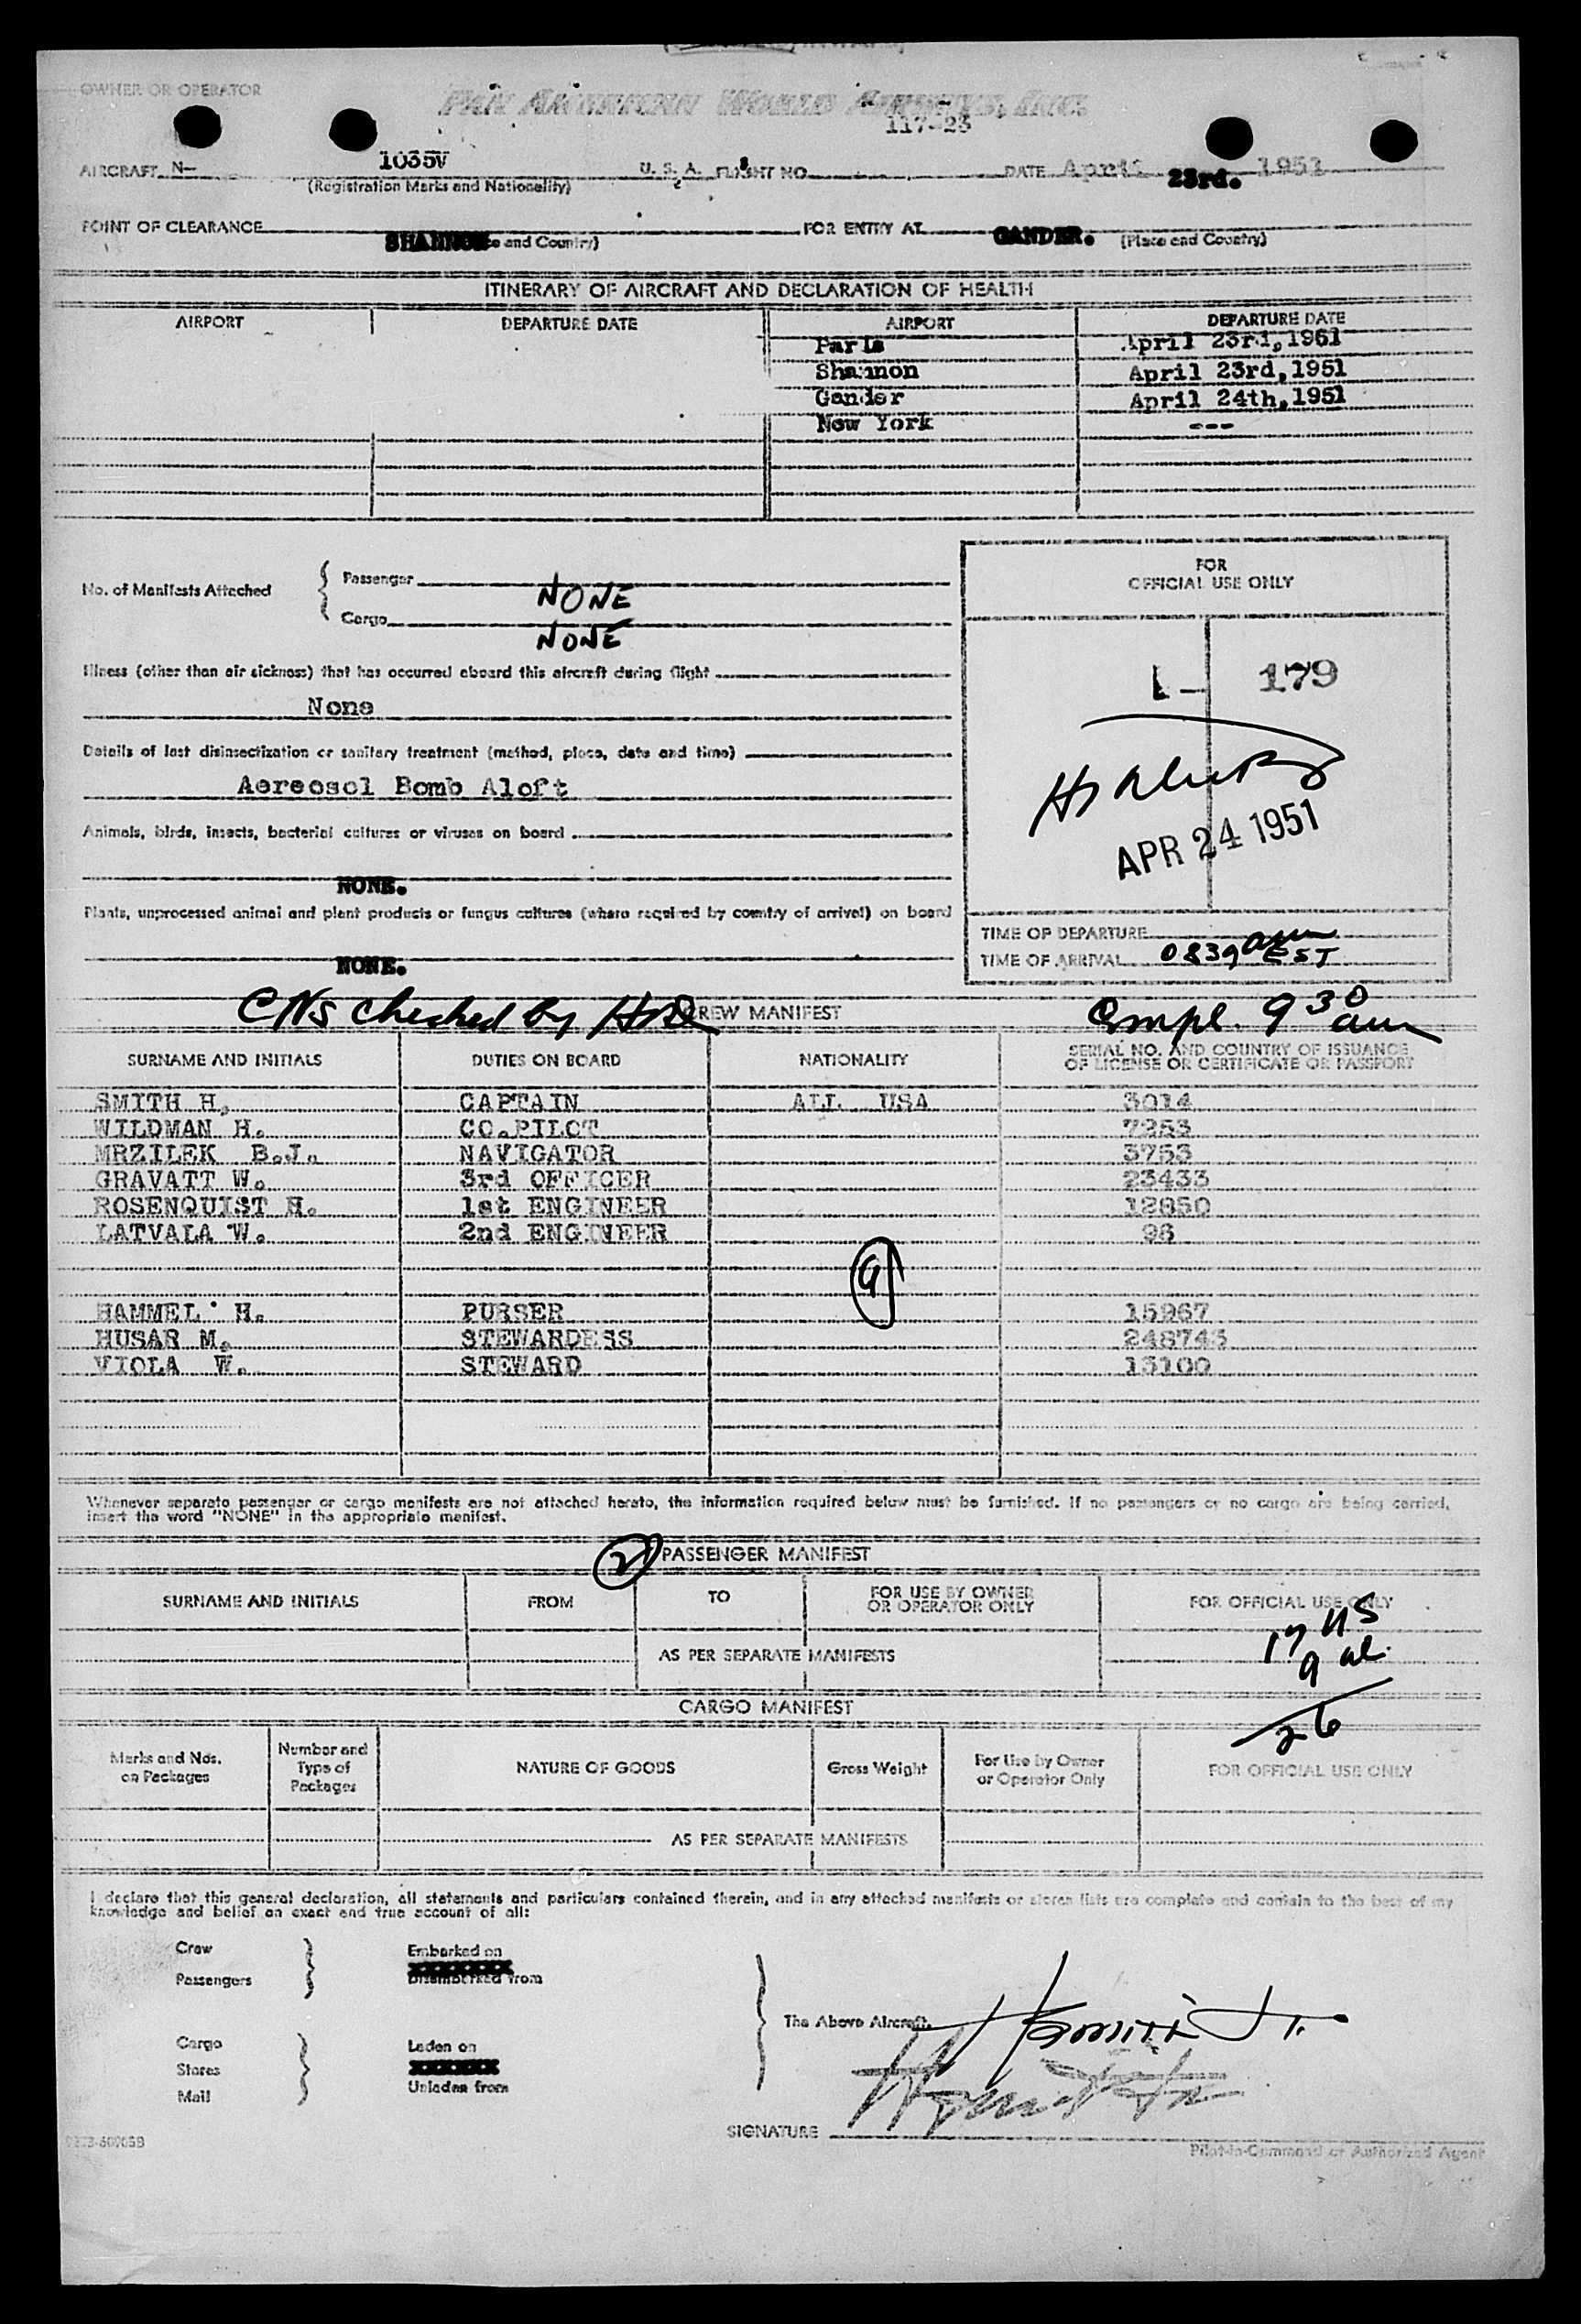 OWNER OR OPERATOR PAN AMERICAN WORLD AIRWAYS, INC.
117-23
AIRCRAFT N- 1035V U. S. A. FLIGHT NO. DATE April 23rd. 1951
(Registration Marks and Nationality)
POINT OF CLEARANCE SHANNON FOR ENTRY AT GANDER.
and Country) (Place and Country)
ITINERARY OF AIRCRAFT AND DECLARATION OF HEALTH
AIRPORT DEPARTURE DATE AIRPORT DEPARTURE DATE
Paris April 23rd, 1951
Shannon April 23rd, 1951
Gander April 24th, 1951
New York ---
No. of Manifests Attached
Passenger NONE
Cargo NONE
Illness (other than air sickness) that has occurred aboard this aircraft during flight
None
Details of last disinsectization or sanitary treatment (method, place, date and time)
Aereosol Bomb Aloft
Animals, birds, insects, bacterial cultures or viruses on board
NONE.
Plants, unprocessed animal and plant products or fungus cultures (where required by country of arrival) on board
NONE.
FOR
OFFICIAL USE ONLY
179
APR 24 1951
TIME OF DEPARTURE
TIME OF ARRIVAL 0839 am EST
CNs checked by
Compl. 9 30 am
CREW MANIFEST
SURNAME AND INITIALS DUTIES ON BOARD NATIONALITY SERIAL NO. AND COUNTRY OF ISSUANCE
OF LICENSE OR CERTIFICATE OR PASSPORT
SMITH H. CAPTAIN ALL USA 3014
WILDMAN H. CO.PILOT 7253
MRZILEK B.J. NAVIGATOR 3753
GRAVATT W. 3rd OFFICER 23433
ROSENQUIST H. 1st ENGINEER 12850
LATVALA W. 2nd ENGINEER 96
9
HAMMEL H. PURSER 15967
HUSAR M. STEWARDESS 248743
VIOLA W. STEWARD 13100
Whenever separate passenger or cargo manifests are not attached hereto, the information required below must be furnished. If no passengers or no cargo are being carried,
insert the word "NONE" in the appropriate manifest.
PASSENGER MANIFEST
SURNAME AND INITIALS FROM TO FOR USE BY OWNER
OR OPERATOR ONLY FOR OFFICIAL USE ONLY
17 US
AS PER SEPARATE MANIFESTS 9 al.
26
CARGO MANIFEST
Marks and Nos.
on Packages
Number and
Type of
Packages
NATURE OF GOODS
Gross Weight
For Use by Owner
or Operator Only
FOR OFFICIAL USE ONLY
AS PER SEPARATE MANIFESTS
I declare that this general declaration, all statements and particulars contained therein, and in any attached manifests or stores lists are complete and contain to the best of my
knowledge and belief an exact and true account of all:
Crew
Passengers
Embarked on
XXXXXXX
Disembarked from
Cargo
Stores
Mail
Laden on
XXXXXX
Unladen from
The Above Aircraft.
SIGNATURE
Pilot-in-Command or Authorized Agent